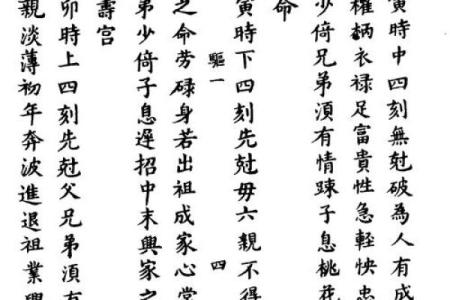 寅時中四刻無尅破為人有成
權柄衣禄足冨貴性急軽快忠
少倚兄弟湏有情踈子息桃花
命
寅時下四刻先尅毋六親不得
驅一
四
之命劳碌身若出祖成家心常
弟少倚子息遲招中末興家之
壽宮
卯時上四刻先尅父兄弟湏有
親淡薄初年奔波進退祖業興